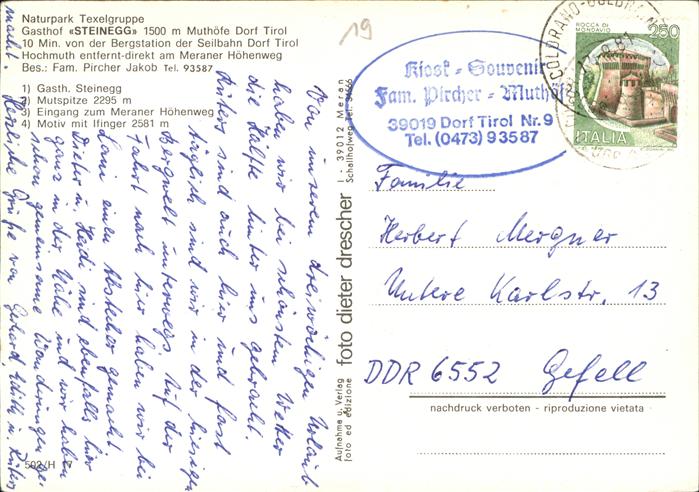 Naturpark Texelgruppe
Gasthof «STEINEGG» 1500 m Muthöfe Dorf Tirol
10 Min. von der Bergstation der Seilbahn Dorf Tirol
Hochmuth entfernt-direkt am Meraner Höhenweg
Bes.: Fam. Pircher Jakob Tel. 93587
1) Gasth. Steinegg
2) Mutspitze 2295 m
3) Eingang zum Meraner Höhenweg
4) Motiv mit Ifinger 2581 m
Von unserem dreiwöchigen Urlaub
haben wir bei schönstem Wetter
die Hälfte hinter uns gebracht.
sind auch hier und fast
täglich sind wir in der hiesigen
Bergwelt unterwegs. Auf der
Fahrt nach hier haben wir bei
einen Abstecher gemacht
Dieter u. Heidi sind ebenfalls hier
ganz in der Nähe und wir haben
schon gemeinsame Wanderungen ge-
macht. Herzliche Grüße von
592/H 77
Aufnahme u. Verlag
foto ed edizione
foto dieter drescher
I - 39012 Meran
19
Kiosk - Souvenir
Fam. Pircher - Muthöf
39019 Dorf Tirol Nr. 9
Tel. (0473) 93587
COLDRANO-GOLDRAIN
ROCCA DI
MONDAVIO
250
ITALIA
Familie
Herbert Mergner
Untere Karlstr. 13
DDR 6552 Gefell
nachdruck verboten - riproduzione vietata